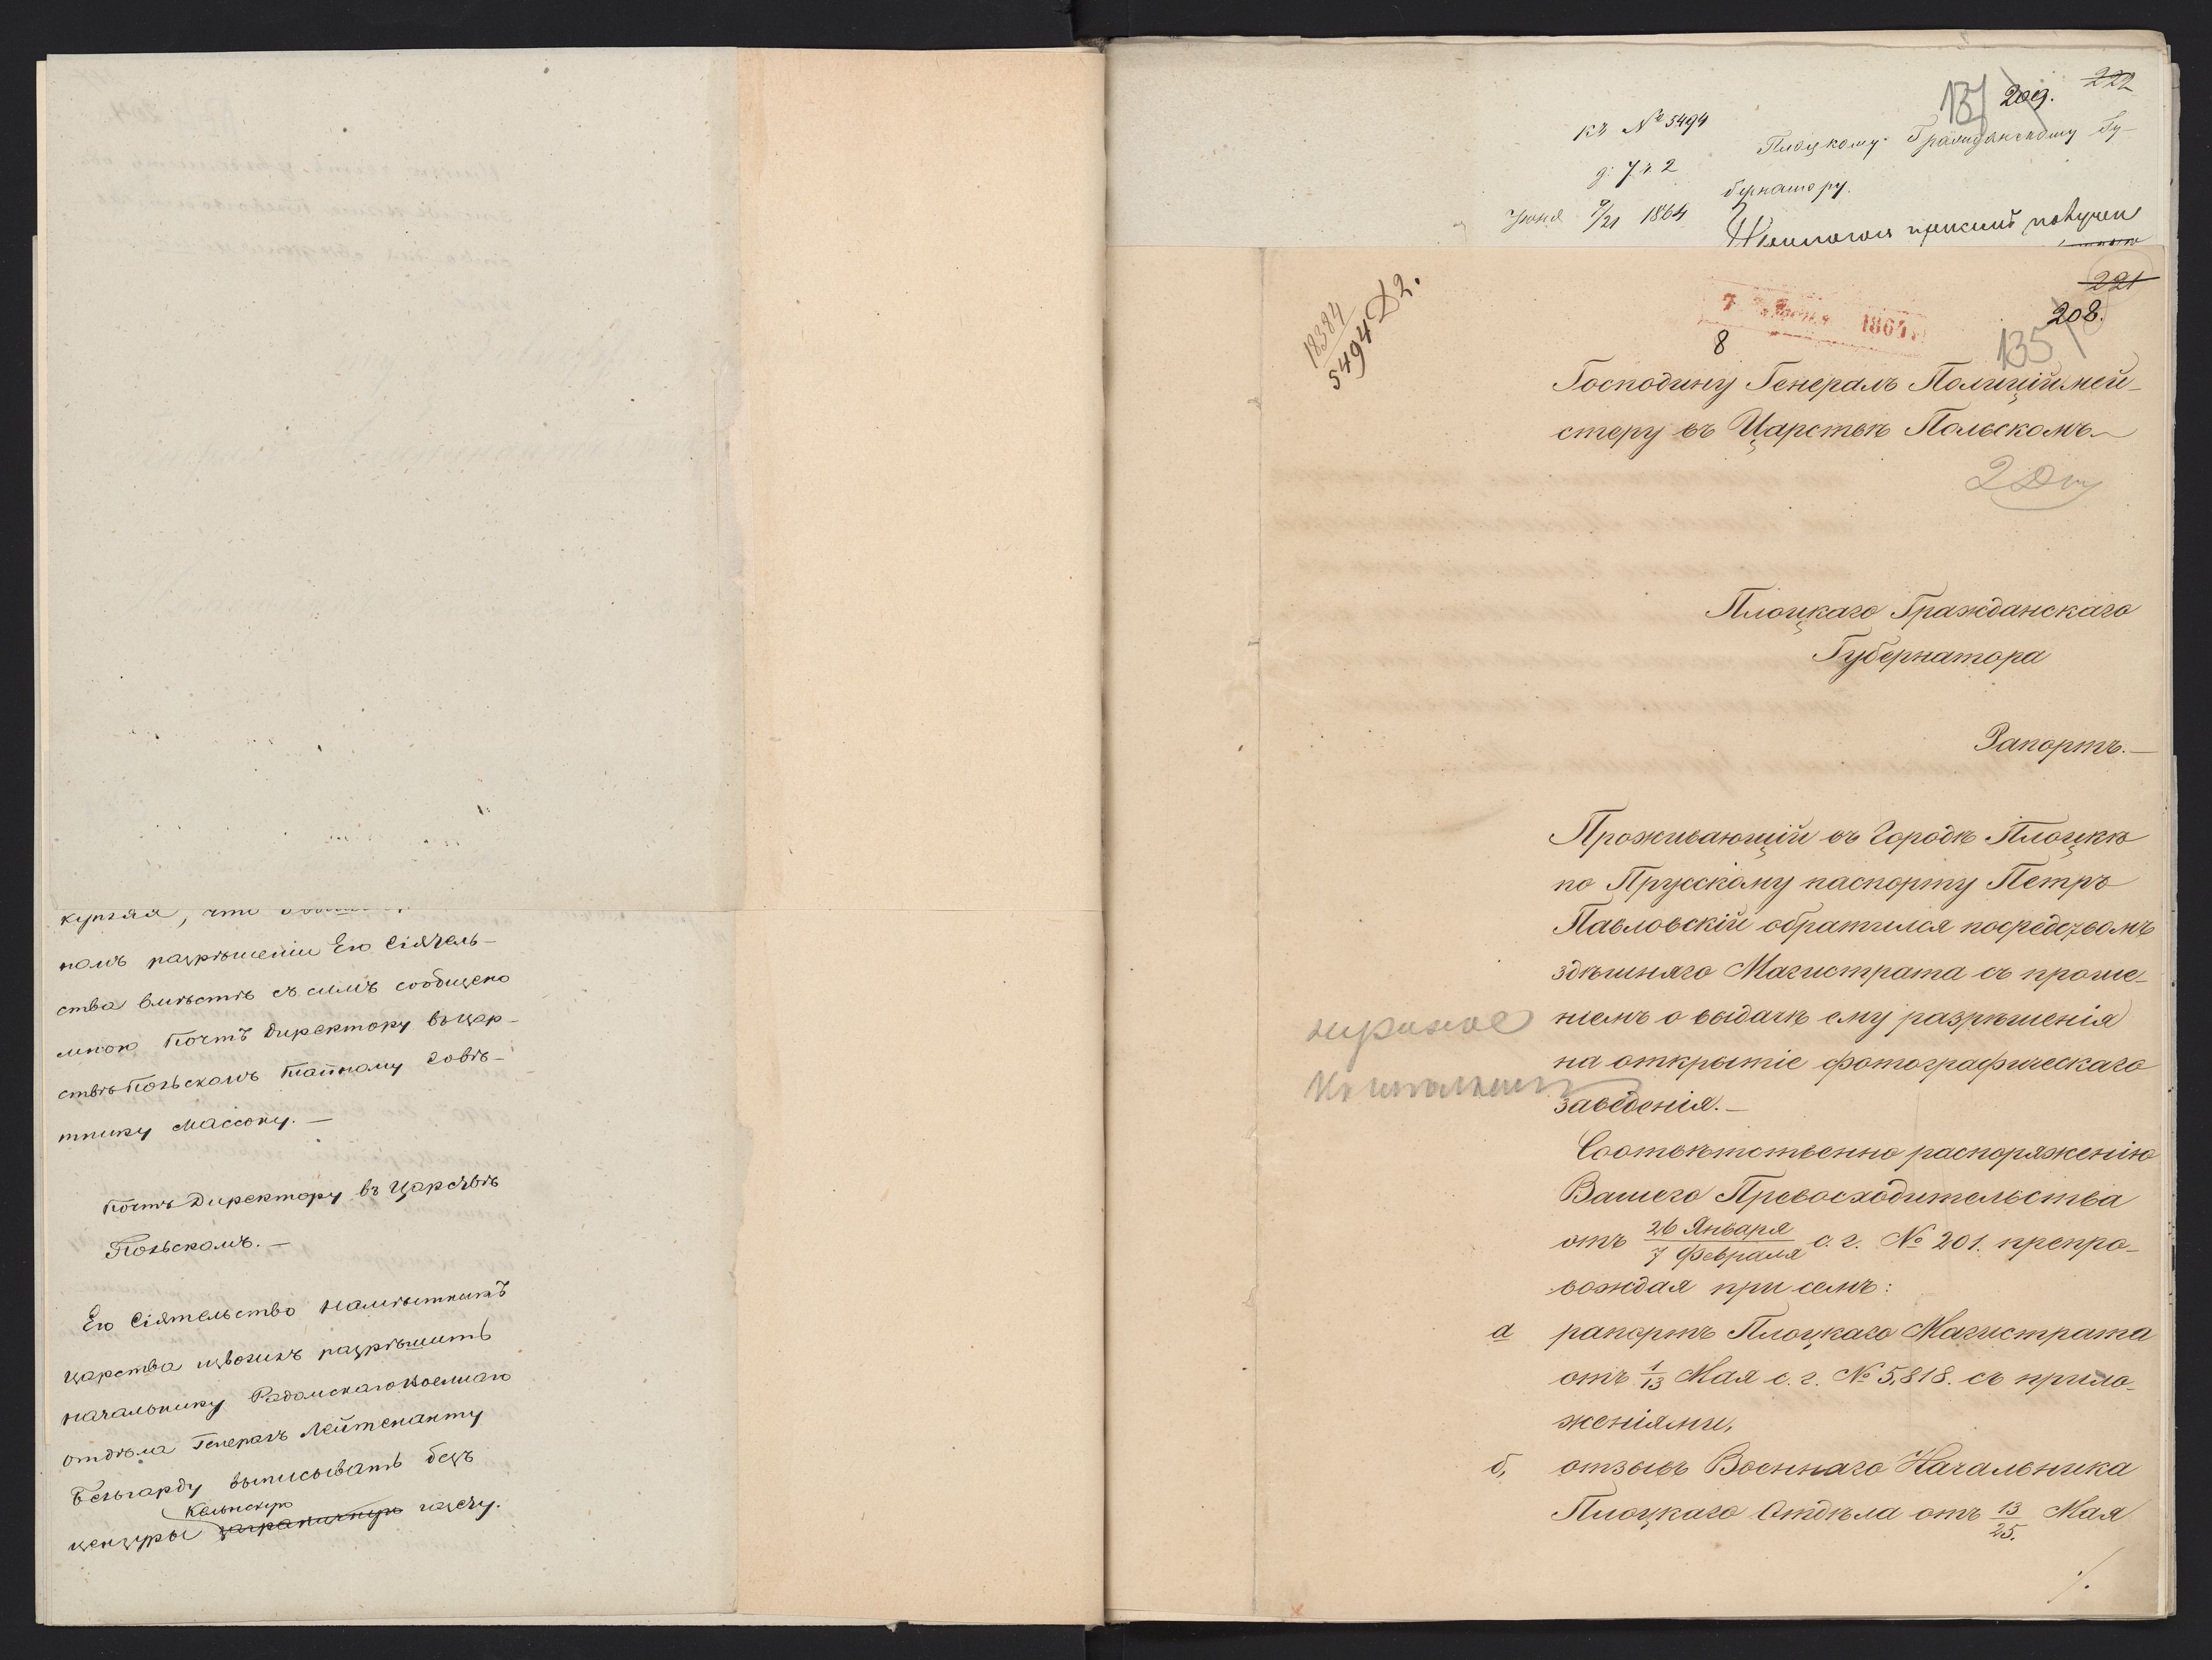 номъ разрѣшеніи Его Сіятель-
ства вмѣстѣ съ симъ сообщено
мною Почтъ Директору въ Цар-
ствѣ Польскомъ Тайному Совѣ-
тнику Массону. —
Почтъ Директору въ Царствѣ
Польскомъ. —
Его Сіятельство Намѣстникъ
Царства изволилъ разрѣшить
начальнику Радомскаго Военнаго
отдѣла Генералъ Лейтенанту
Бельгарду выписывать безъ
Кельнскую
цензуры заграничную газету.
222
209.
137
къ № 5494
д. 7. 2
Іюня 9/21 1864
Плоцкому Гражданскому Гу-
бернатору.
221
208.
135
18384
5494 Д2.
7 Іюня 1864
8
Господину Генералъ Полиціймей-
стеру въ Царствѣ Польскомъ
Плоцкаго Гражданскаго
Губернатора
Рапортъ. —
Проживающій въ Городѣ Плоцкѣ
по Прусскому паспорту Петръ
Павловскій обратился посредствомъ
здѣшняго Магистрата съ проше-
ніемъ о выдачѣ ему разрѣшенія
на открытіе фотографическаго
заведенія. —
Соотвѣтственно распоряженію
Вашего Превосходительства
отъ 26 Января / 7 Февраля с. г. № 201. препро-
вождая при семъ:
а рапортъ Плоцкаго Магистрата
отъ 1/13 Мая с. г. № 5,818. съ прило-
женіями,
б, отзывъ Военнаго Начальника
Плоцкаго Отдѣла отъ 13/25. Мая